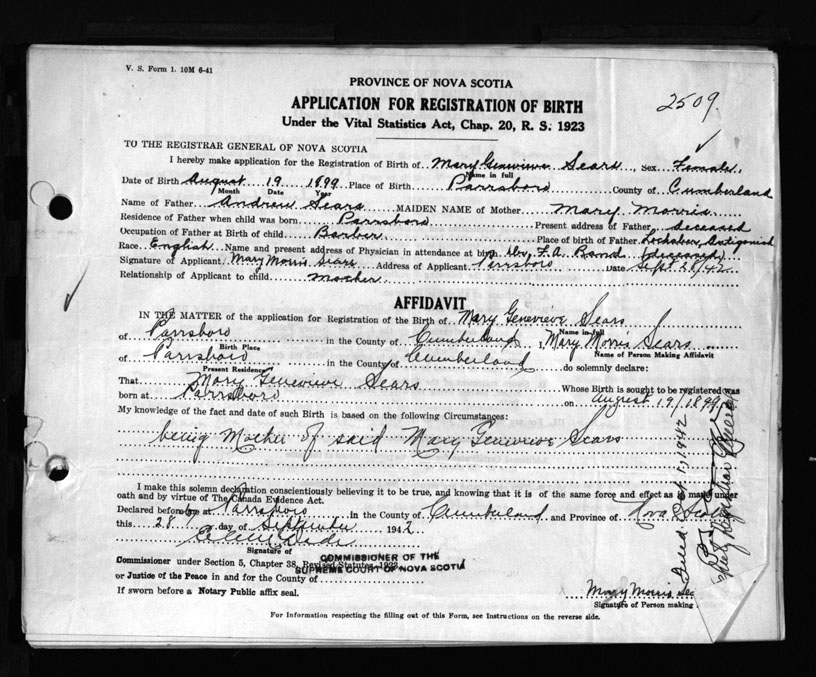 V. S. Form 1. 10M 6-41
PROVINCE OF NOVA SCOTIA
2509.
APPLICATION FOR REGISTRATION OF BIRTH
Under the Vital Statistics Act, Chap. 20, R. S. 1923
TO THE REGISTRAR GENERAL OF NOVA SCOTIA
I hereby make application for the Registration of Birth of Mary Genevieve Sears, Sex Female
Name in full
Date of Birth August 19 1899 Place of Birth Parrsboro County of Cumberland
Month Date Year
Name of Father Andrew Sears MAIDEN NAME of Mother Mary Morris
Residence of Father when child was born Parrsboro Present address of Father deceased
Occupation of Father at Birth of child Barber Place of birth of Father Lochaber, Antigonish
Race English Name and present address of Physician in attendance at birth F. A. Rand (deceased)
Signature of Applicant Mary Morris Sears Address of Applicant Parrsboro Date Sept. 28/42
Relationship of Applicant to child mother
AFFIDAVIT
IN THE MATTER of the application for Registration of the Birth of Mary Genevieve Sears
Name in full
of Parrsboro in the County of Cumberland I, Mary Morris Sears
Birth Place Name of Person Making Affidavit
of Parrsboro in the County of Cumberland do solemnly declare:
Present Residence
That Mary Genevieve Sears Whose Birth is sought to be registered was
born at Parrsboro on August 19/1899
My knowledge of the fact and date of such Birth is based on the following Circumstances:
being Mother of said Mary Genevieve Sears
I make this solemn declaration conscientiously believing it to be true, and knowing that it is of the same force and effect as if made under
oath and by virtue of The Canada Evidence Act.
Declared before me at Parrsboro in the County of Cumberland and Province of Nova Scotia
this 28 day of September 1942
Signature of
COMMISSIONER OF THE
SUPREME COURT OF NOVA SCOTIA
Commissioner under Section 5, Chapter 38, Revised Statutes, 1923
or Justice of the Peace in and for the County of
If sworn before a Notary Public affix seal.
Mary Morris Sea
Signature of Person making
For Information respecting the filling out of this Form, see Instructions on the reverse side.
1942